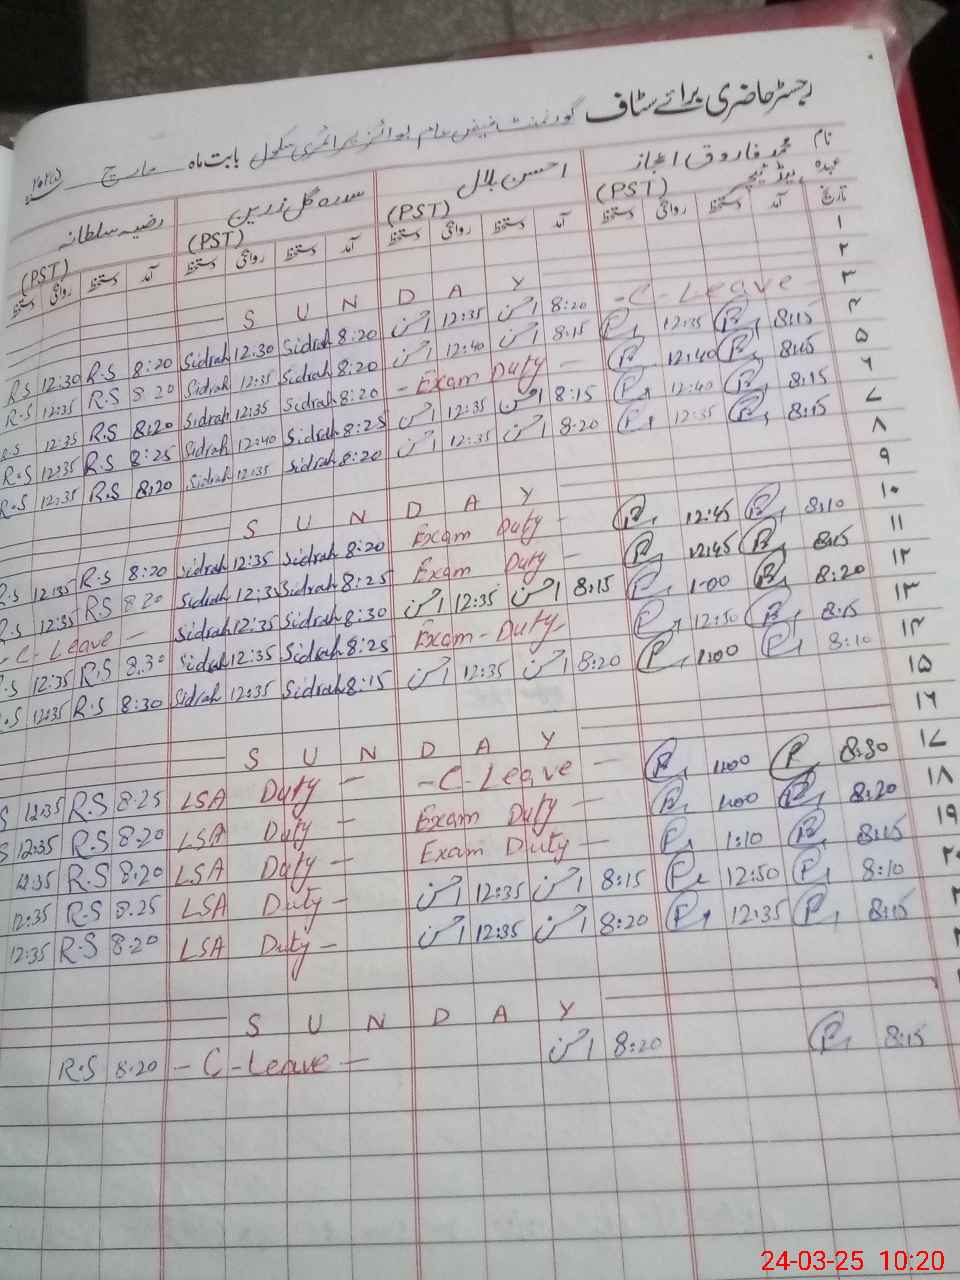 رجسٹر حاضری برائے سٹاف گورنمنٹ فیض عام بوائز پرائمری سکول بابت ماہ مارچ ۲۰۲۵
نام محمد فاروق اعجاز احسن بلال سدرہ گل زرین رضیہ سلطانہ
عہدہ ہیڈ ٹیچر (PST) (PST) (PST) (PST)
تاریخ آمد دستخط روانگی دستخط آمد دستخط روانگی دستخط آمد دستخط روانگی دستخط آمد دستخط روانگی دستخط
۱
۲ S U N D A Y
۳ - C - Leave - 8:20 احسن 12:35 احسن 8:20 Sidrah 12:30 Sidrah 8:20 R.S 12:30 R.S
۴ 8:15 12:35 8:15 احسن 12:40 احسن 8:20 Sidrah 12:35 Sidrah 8:20 R.S 12:35 R.S
۵ 8:15 12:40 - Exam Duty - 8:20 Sidrah 12:35 Sidrah 8:20 R.S 12:35 R.S
۶ 8:15 12:40 8:15 احسن 12:35 احسن 8:25 Sidrah 12:40 Sidrah 8:25 R.S 12:35 R.S
۷ 8:15 12:35 8:20 احسن 12:35 احسن 8:20 Sidrah 12:35 Sidrah 8:20 R.S 12:35 R.S
۸
۹ S U N D A Y
۱۰ 8:10 12:45 Exam Duty - 8:20 Sidrah 12:35 Sidrah 8:20 R.S 12:35 R.S
۱۱ 8:15 12:45 Exam Duty - 8:25 Sidrah 12:35 Sidrah 8:20 R.S 12:35 R.S
۱۲ 8:20 1:00 8:15 احسن 12:35 احسن 8:30 Sidrah 12:35 Sidrah - C - Leave -
۱۳ 8:15 12:50 Exam - Duty - 8:25 Sidrah 12:35 Sidrah 8:30 R.S 12:35 R.S
۱۴ 8:10 1:00 8:20 احسن 12:35 احسن 8:15 Sidrah 12:35 Sidrah 8:30 R.S 12:35 R.S
۱۵
۱۶ S U N D A Y
۱۷ 8:30 1:00 - C - Leave - LSA Duty - 8:25 R.S 12:35 S
۱۸ 8:20 1:00 Exam Duty - LSA Duty - 8:20 R.S 12:35 S
۱۹ 8:15 1:10 Exam Duty - LSA Duty - 8:20 R.S 12:35
۲۰ 8:10 12:50 8:15 احسن 12:35 احسن LSA Duty - 8:25 R.S 12:35
8:15 12:35 8:20 احسن 12:35 احسن LSA Duty - 8:20 R.S 12:35
S U N D A Y
8:15 8:20 احسن - C - Leave - 8:20 R.S
24-03-25 10:20